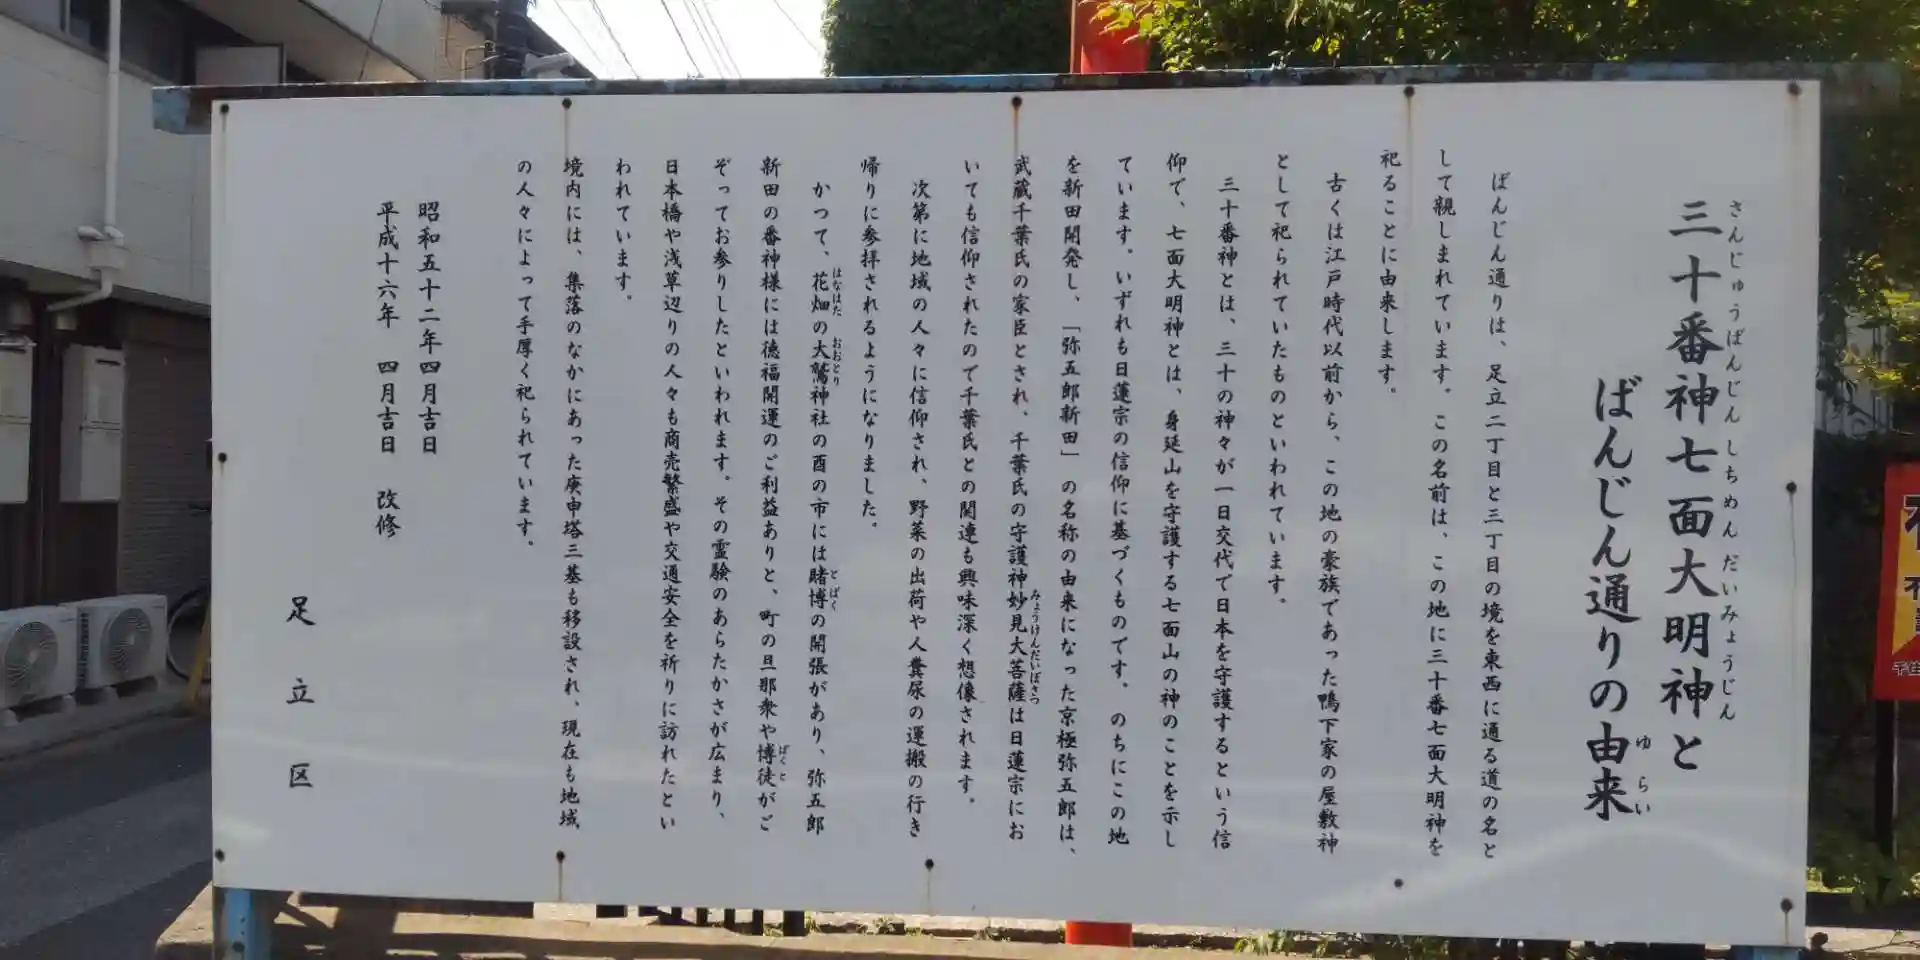 三十番神七面大明神と
さんじゅうばんじんしちめんだいみょうじん
ばんじん通りの由来
ゆらい
ばんじん通りは、足立二丁目と三丁目の境を東西に通る道の名と
して親しまれています。この名前は、この地に三十番七面大明神を
祀ることに由来します。
古くは江戸時代以前から、この地の豪族であった鴨下家の屋敷神
として祀られていたものといわれています。
三十番神とは、三十の神々が一日交代で日本を守護するという信
仰で、七面大明神とは、身延山を守護する七面山の神のことを示し
ています。いずれも日蓮宗の信仰に基づくものです。のちにこの地
を新田開発し、「弥五郎新田」の名称の由来になった京極弥五郎は、
武蔵千葉氏の家臣とされ、千葉氏の守護神妙見大菩薩は日蓮宗にお
みょうけんだいぼさつ
いても信仰されたので千葉氏との関連も興味深く想像されます。
次第に地域の人々に信仰され、野菜の出荷や人糞尿の運搬の行き
帰りに参拝されるようになりました。
かつて、花畑の大鷲神社の酉の市には賭博の開張があり、弥五郎
はなはた
おおとり
とばく
新田の番神様には徳福開運のご利益ありと、町の旦那衆や博徒がご
ばくと
ぞってお参りしたといわれます。その霊験のあらたかさが広まり、
日本橋や浅草辺りの人々も商売繁盛や交通安全を祈りに訪れたとい
われています。
境内には、集落のなかにあった庚申塔三基も移設され、現在も地域
の人々によって手厚く祀られています。
昭和五十二年四月吉日
平成十六年 四月吉日 改修
足立区